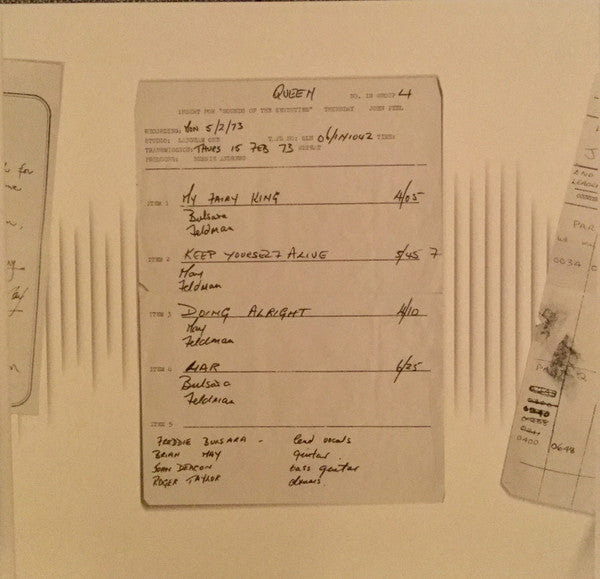 QUEEN
NO. IN GROUP 4
INSERT FOR "SOUNDS OF THE SEVENTIES" THURSDAY JOHN PEEL
RECORDING: MON 5/2/73
STUDIO: LANGHAM ONE TAPE NO: SLN 06/1N1042 TIME:
TRANSMISSION: THURS 15 FEB 73 REPEAT
PRODUCER: BERNIE ANDREWS
ITEM 1 MY FAIRY KING 4/05
Bulsara
Feldman
ITEM 2 KEEP YOURSELF ALIVE 3/45 7
May
Feldman
ITEM 3 DOING ALRIGHT 4/10
May
Feldman
ITEM 4 LIAR 6/25
Bulsara
Feldman
ITEM 5
FREDDIE BULSARA - lead vocals
BRIAN MAY guitar.
JOHN DEACON bass guitar
ROGER TAYLOR drums.
for
J
AND
LEADER
PAR
0034
0400 0648